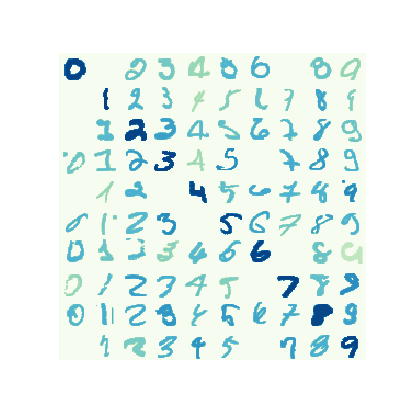 0 2 3 4 8 6 8 9
1 2 3 4 5 6 7 8 9
1 2 3 4 5 6 7 8 9
0 1 2 3 4 5 7 8 9
1 2 4 5 6 7 8 9
0 1 2 3 5 6 7 8 9
0 1 2 3 4 5 6 8 9
0 1 2 3 4 5 7 8 9
0 1 2 3 4 5 6 7 8 9
1 2 3 4 5 7 8 9